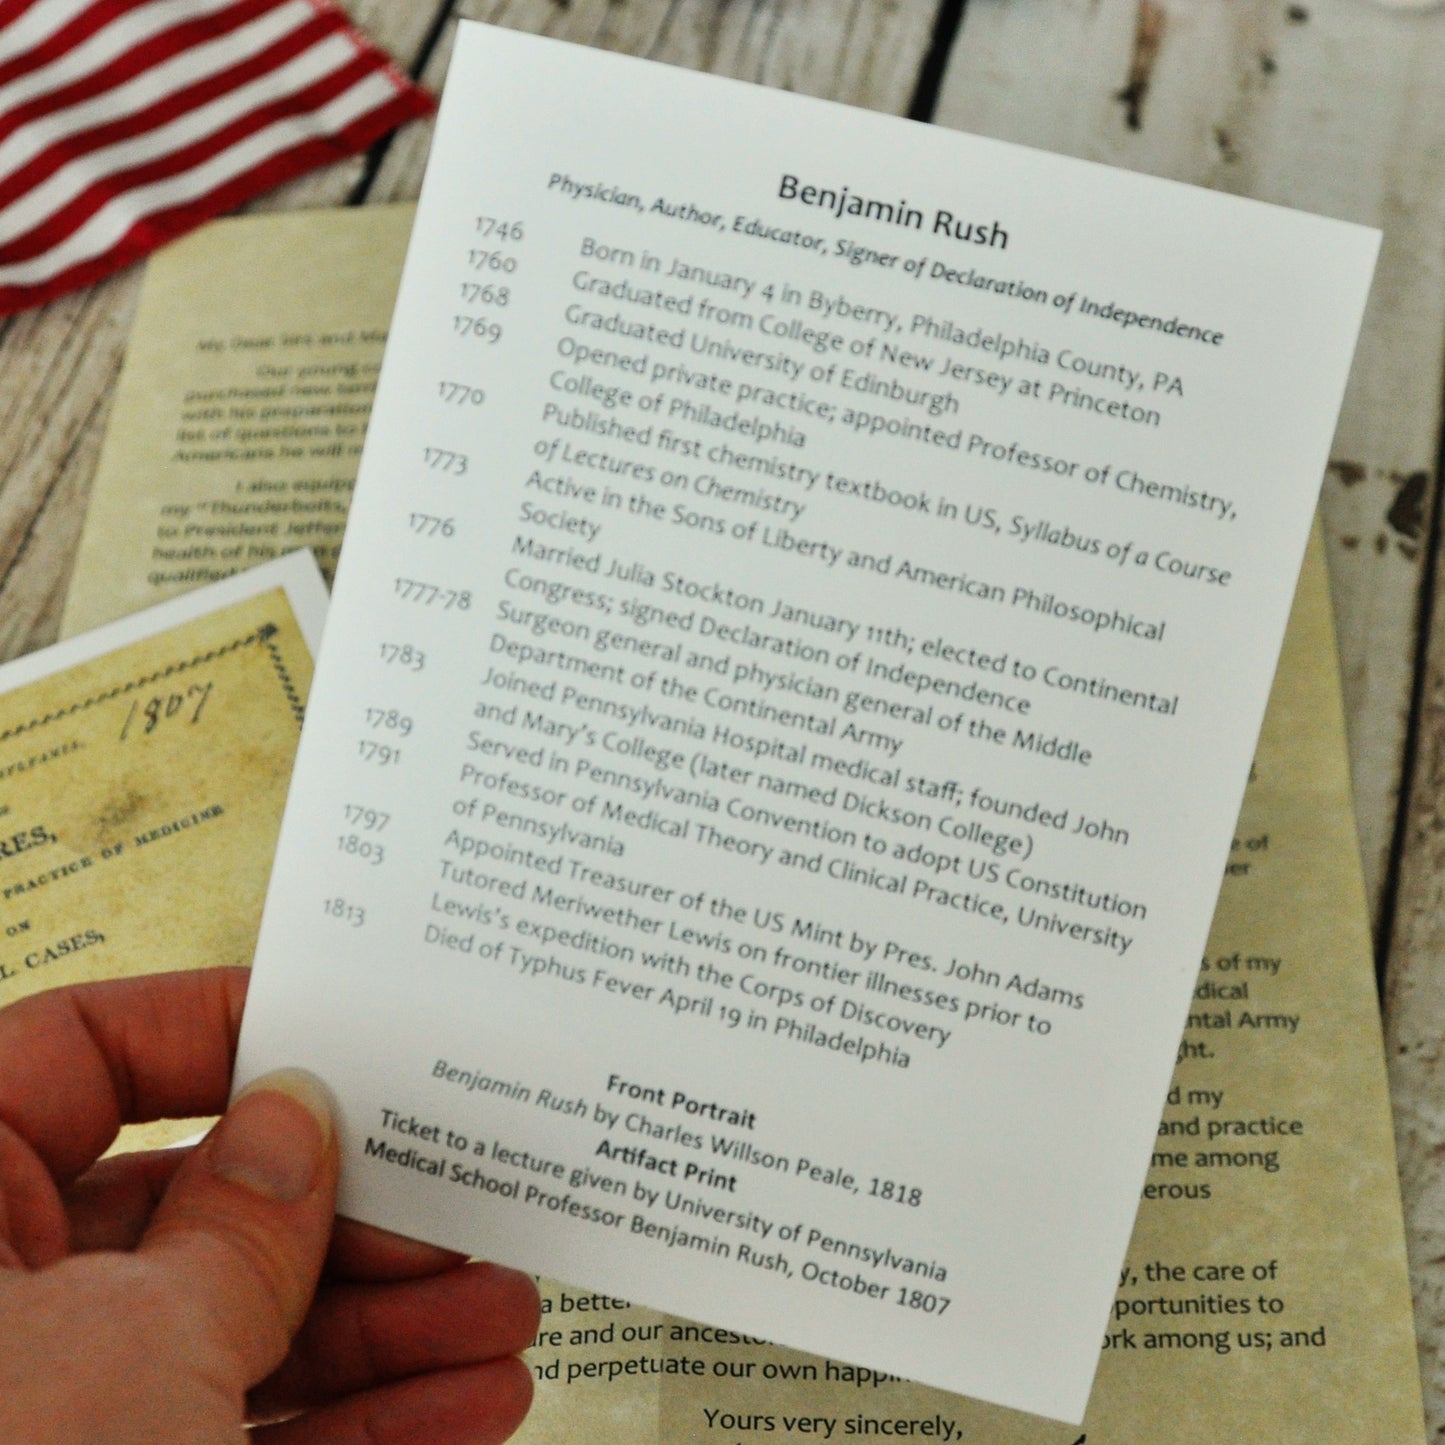 Benjamin Rush
Physician, Author, Educator, Signer of Declaration of Independence
1746 Born in January 4 in Byberry, Philadelphia County, PA
1760 Graduated from College of New Jersey at Princeton
1768 Graduated University of Edinburgh
1769 Opened private practice; appointed Professor of Chemistry,
College of Philadelphia
1770 Published first chemistry textbook in US, Syllabus of a Course
of Lectures on Chemistry
1773 Active in the Sons of Liberty and American Philosophical
Society
1776 Married Julia Stockton January 11th; elected to Continental
Congress; signed Declaration of Independence
1777-78 Surgeon general and physician general of the Middle
Department of the Continental Army
1783 Joined Pennsylvania Hospital medical staff; founded John
and Mary's College (later named Dickson College)
1789 Served in Pennsylvania Convention to adopt US Constitution
1791 Professor of Medical Theory and Clinical Practice, University
of Pennsylvania
1797 Appointed Treasurer of the US Mint by Pres. John Adams
1803 Tutored Meriwether Lewis on frontier illnesses prior to
Lewis's expedition with the Corps of Discovery
1813 Died of Typhus Fever April 19 in Philadelphia
Front Portrait
Benjamin Rush by Charles Willson Peale, 1818
Artifact Print
Ticket to a lecture given by University of Pennsylvania
Medical School Professor Benjamin Rush, October 1807
My Dear Sirs and
Our young
purchased new
with his preparation
list of questions to
Americans he will
I also
my "Thunderbolts,
to President
health of his
qualified
1807
PRACTICE OF MEDICINE
ON
CASES,
of
of my
Army
my
and practice
me among
the care of
to
among us; and
a
and our
perpetuate our own
Yours very sincerely,